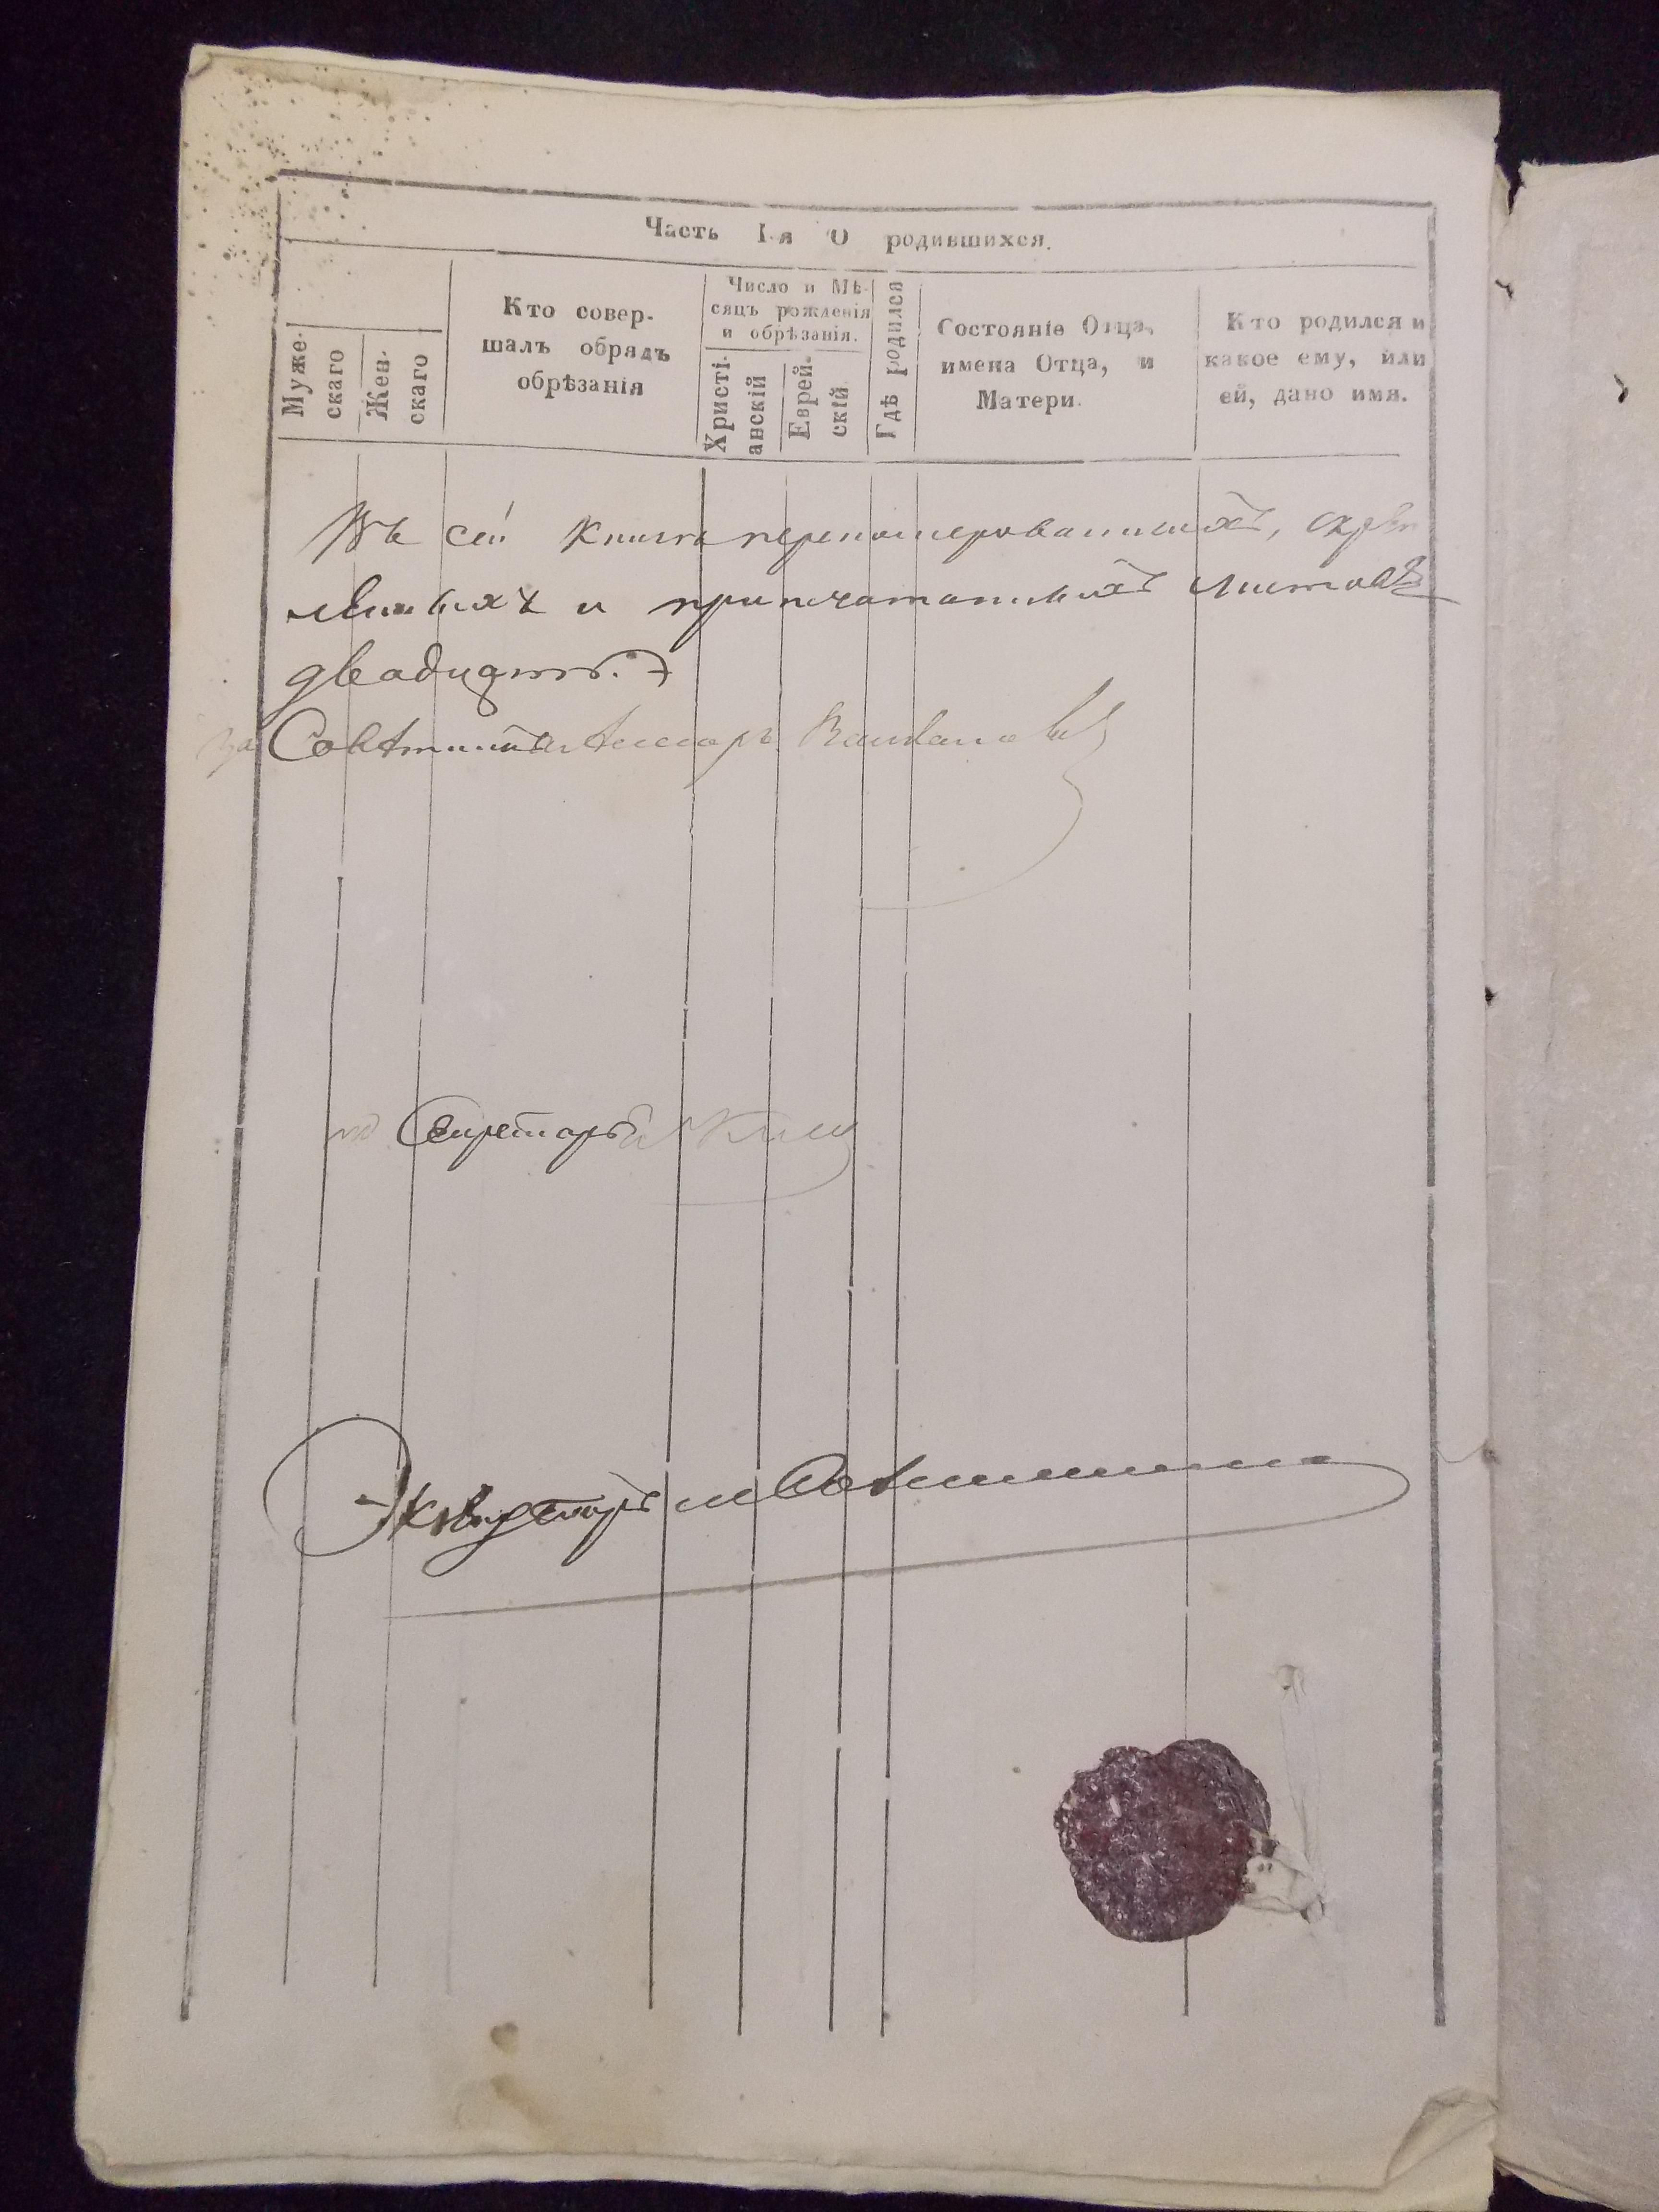 Часть I-я О родившихся.
Муже-
скаго
Жен-
скаго
Кто совер-
шалъ обрядъ
обрѣзанія
Число и Мѣ-
сяцъ рожденія
и обрѣзанія.
Христі-
анскій
Еврей-
скій
Гдѣ родился
Состояніе Отца,
имена Отца, и
Матери.
Кто родился и
какое ему, или
ей, дано имя.
Въ сей книгѣ перенумерованныхъ, скрѣп
ленныхъ и припечатанныхъ листовъ
двадцать.
за Совѣтника Ассесоръ
Секретарь
Экзекуторъ